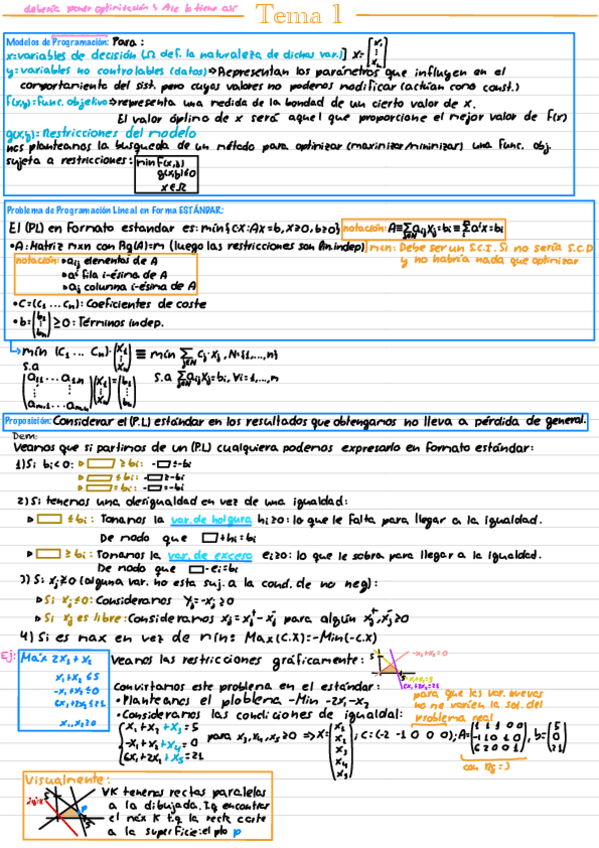 debería poner optimización
Tema 1
Modelos de Programación: Para:
x=variables de decisión (Ω def. la naturaleza de dichas var.) x=(x₁ ⋮ xₙ)
y=variables no controlables (datos)⇒Representan los parámetros que influyen en el
comportamiento del sist. pero cuyos valores no podemos modificar (actúan como const.)
f(x,y)=func. objetivo⇒representa una medida de la bondad de un cierto valor de x.
El valor óptimo de x será aquel que proporcione el mejor valor de F(x)
g(x,y)=Restricciones del modelo
nos planteamos la busqueda de un método para optimizar (maximizar/minimizar) una func. obj.
sujeta a restricciones: min F(x,y)
g(x,y)≤0
x∈Ω
Problema de Programación Lineal en Forma ESTÁNDAR:
El (PL) en Formato estandar es: min{cx:Ax=b, x≥0, b≥0} notación:
•A: Matriz mxn con Rg(A)=m (luego las restricciones son lin. indep) m<n: Debe ser un S.C.I. Si no sería S.C.D
y no habría nada que optimizar
notación: aᵢⱼ elementos de A
aⁱ fila i-ésima de A
aⱼ columna i-ésima de A
•C=(C₁ ... Cₙ): Coeficientes de coste
•b=(b₁ ⋮ bₙ)≥0: Términos indep.
min (C₁ ... Cₙ)·(x₁ ⋮ xₙ) ≡ min Σ cⱼ·xⱼ, N={1,...,n}
s.a
(a₁₁ ... a₁ₙ ⋮ aₘ₁ ... aₘₙ)(x₁ ⋮ xₙ)=(b₁ ⋮ bₙ) s.a Σaᵢⱼxⱼ=bᵢ, ∀i=1,...,m
Proposición: Considerar el (P.L) estándar en los resultados que obtengamos no lleva a pérdida de general.
Dem:
Veamos que si partimos de un (P.L) cualquiera podemos expresarlo en formato estándar:
1) Si bᵢ<0: ▭ ≥bᵢ: -▭≤-bᵢ
▭ ≤bᵢ: -▭≥-bᵢ
▭ =bᵢ: -▭=-bᵢ
2) Si tenemos una desigualdad en vez de una igualdad:
▭ ≤bᵢ: Tomamos la var. de holgura hᵢ≥0: lo que le falta para llegar a la igualdad.
De modo que ▭+hᵢ=bᵢ
▭ ≥bᵢ: Tomamos la var. de exceso eᵢ≥0: lo que le sobra para llegar a la igualdad.
De modo que ▭-eᵢ=bᵢ
3) Si xⱼ≱0 (alguna var. no esta suj. a la cond. de no neg):
Si xⱼ≤0: Consideramos yⱼ=-xⱼ≥0
Si xⱼ es libre: Consideramos xⱼ=xⱼ⁺-xⱼ⁻ para algún xⱼ⁺,xⱼ⁻≥0
4) Si es max en vez de min: Max(C.X)=-Min(-C.X)
Ej: Máx 2x₁+x₂
x₁+x₂≤5
-x₁+x₂≤0
6x₁+2x₂≤21
x₁,x₂≥0
Veamos las restricciones gráficamente:
-x₁+x₂=0
x₁+x₂=5
6x₁+2x₂=21
Convirtamos este problema en el estándar:
•Planteamos el ploblema -Min -2x₁-x₂
•Consideramos las condiciones de igualdad:
para que las var. nuevas
no me varíen la sol. del
problema real
x₁+x₂+x₃=5
-x₁+x₂+x₄=0
6x₁+2x₂+x₅=21
para x₃,x₄,x₅≥0 ⇒X=(x₁ x₂ x₃ x₄ x₅); C=(-2 -1 0 0 0); A=(1 1 1 0 0 / -1 1 0 1 0 / 6 2 0 0 1), b=(5 0 21)
con rg=3
Visualmente:
VK tenemos rectas paralelas
a la dibujada. Tq encontrar
el máx K t.q la recta corte
a la superficie: el pto p